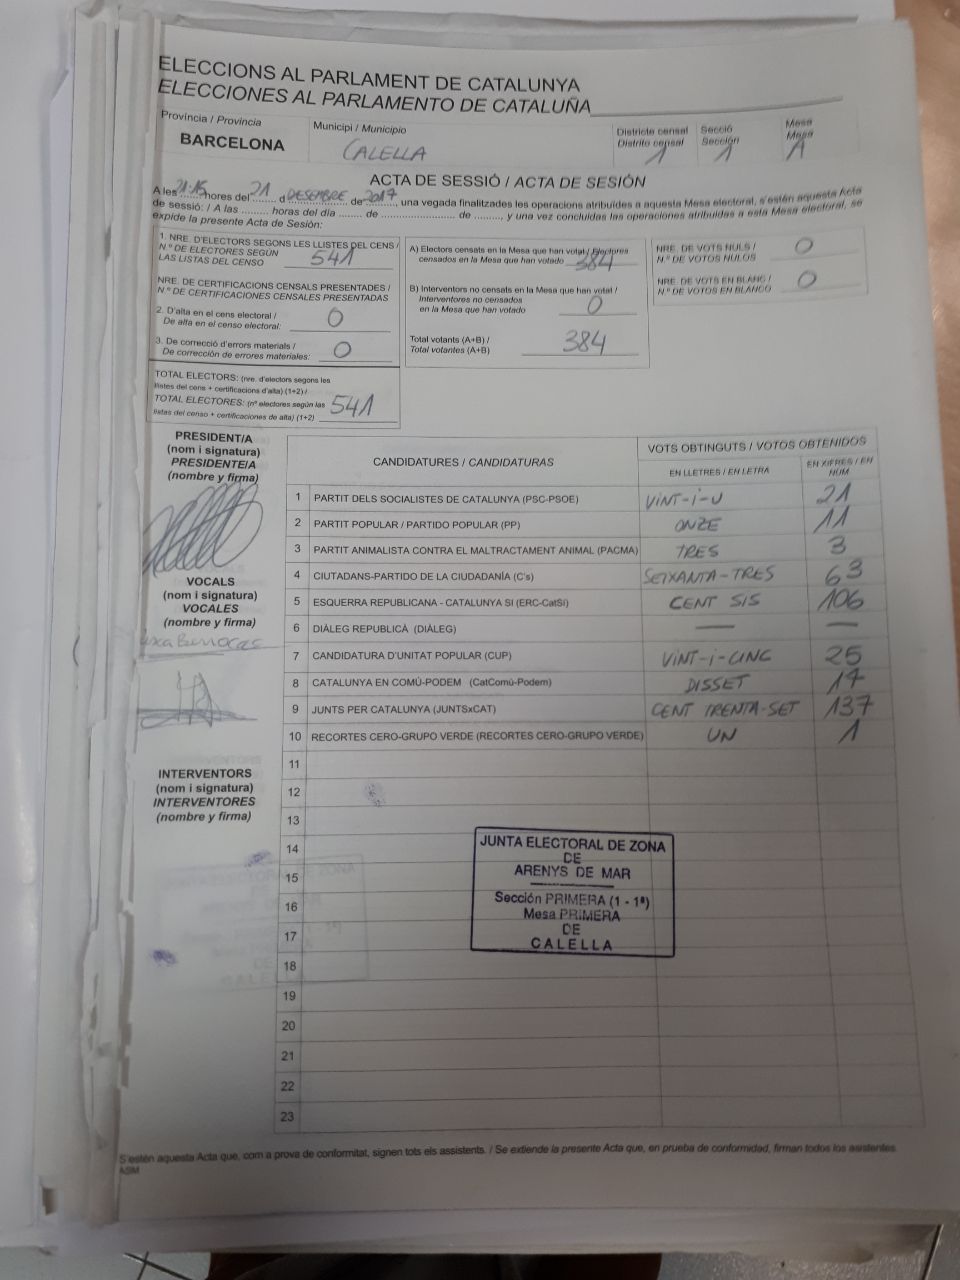 ELECCIONS AL PARLAMENT DE CATALUNYA
ELECCIONES AL PARLAMENTO DE CATALUÑA
Província / Provincia
BARCELONA
Municipi / Municipio
CALELLA
Districte censal
Distrito censal
1
Secció
Sección
1
Mesa
Mesa
A
ACTA DE SESSIÓ / ACTA DE SESIÓN
A les 21:15 hores del 21 d DESEMBRE de 2017, una vegada finalitzades les operacions atribuïdes a aquesta Mesa electoral, s'estén aquesta Acta
de sessió: / A las ......... horas del día ........ de ......................... de ........., y una vez concluidas las operaciones atribuidas a esta Mesa electoral, se
expide la presente Acta de Sesión:
1. NRE. D'ELECTORS SEGONS LES LLISTES DEL CENS /
N.º DE ELECTORES SEGÚN
LAS LISTAS DEL CENSO 541
NRE. DE CERTIFICACIONS CENSALS PRESENTADES /
N.º DE CERTIFICACIONES CENSALES PRESENTADAS
2. D'alta en el cens electoral /
De alta en el censo electoral: 0
3. De correcció d'errors materials /
De corrección de errores materiales: 0
TOTAL ELECTORS: (nre. d'electors segons les
llistes del cens + certificacions d'alta) (1+2) /
TOTAL ELECTORES: (nº electores según las
listas del censo + certificaciones de alta) (1+2) 541
A) Electors censats en la Mesa que han votat / Electores
censados en la Mesa que han votado 384
B) Interventors no censats en la Mesa que han votat /
Interventores no censados
en la Mesa que han votado 0
Total votants (A+B) /
Total votantes (A+B) 384
NRE. DE VOTS NULS /
N.º DE VOTOS NULOS 0
NRE. DE VOTS EN BLANC /
N.º DE VOTOS EN BLANCO 0
PRESIDENT/A
(nom i signatura)
PRESIDENTE/A
(nombre y firma)
VOCALS
(nom i signatura)
VOCALES
(nombre y firma)
INTERVENTORS
(nom i signatura)
INTERVENTORES
(nombre y firma)
CANDIDATURES / CANDIDATURAS
VOTS OBTINGUTS / VOTOS OBTENIDOS
EN LLETRES / EN LETRA
EN XIFRES / EN NÚM
1 PARTIT DELS SOCIALISTES DE CATALUNYA (PSC-PSOE) VINT-i-U 21
2 PARTIT POPULAR / PARTIDO POPULAR (PP) ONZE 11
3 PARTIT ANIMALISTA CONTRA EL MALTRACTAMENT ANIMAL (PACMA) TRES 3
4 CIUTADANS-PARTIDO DE LA CIUDADANÍA (C's) SEIXANTA-TRES 63
5 ESQUERRA REPUBLICANA - CATALUNYA SÍ (ERC-CatSí) CENT SIS 106
6 DIÀLEG REPUBLICÀ (DIÀLEG) — —
7 CANDIDATURA D'UNITAT POPULAR (CUP) VINT-i-CINC 25
8 CATALUNYA EN COMÚ-PODEM (CatComú-Podem) DISSET 17
9 JUNTS PER CATALUNYA (JUNTSxCAT) CENT TRENTA-SET 137
10 RECORTES CERO-GRUPO VERDE (RECORTES CERO-GRUPO VERDE) UN 1
11
12
13
14
15
16
17
18
19
20
21
22
23
JUNTA ELECTORAL DE ZONA
DE
ARENYS DE MAR
Sección PRIMERA (1 - 1ª)
Mesa PRIMERA
DE
CALELLA
S'estén aquesta Acta que, com a prova de conformitat, signen tots els assistents. / Se extiende la presente Acta que, en prueba de conformidad, firman todos los asistentes.
ASM